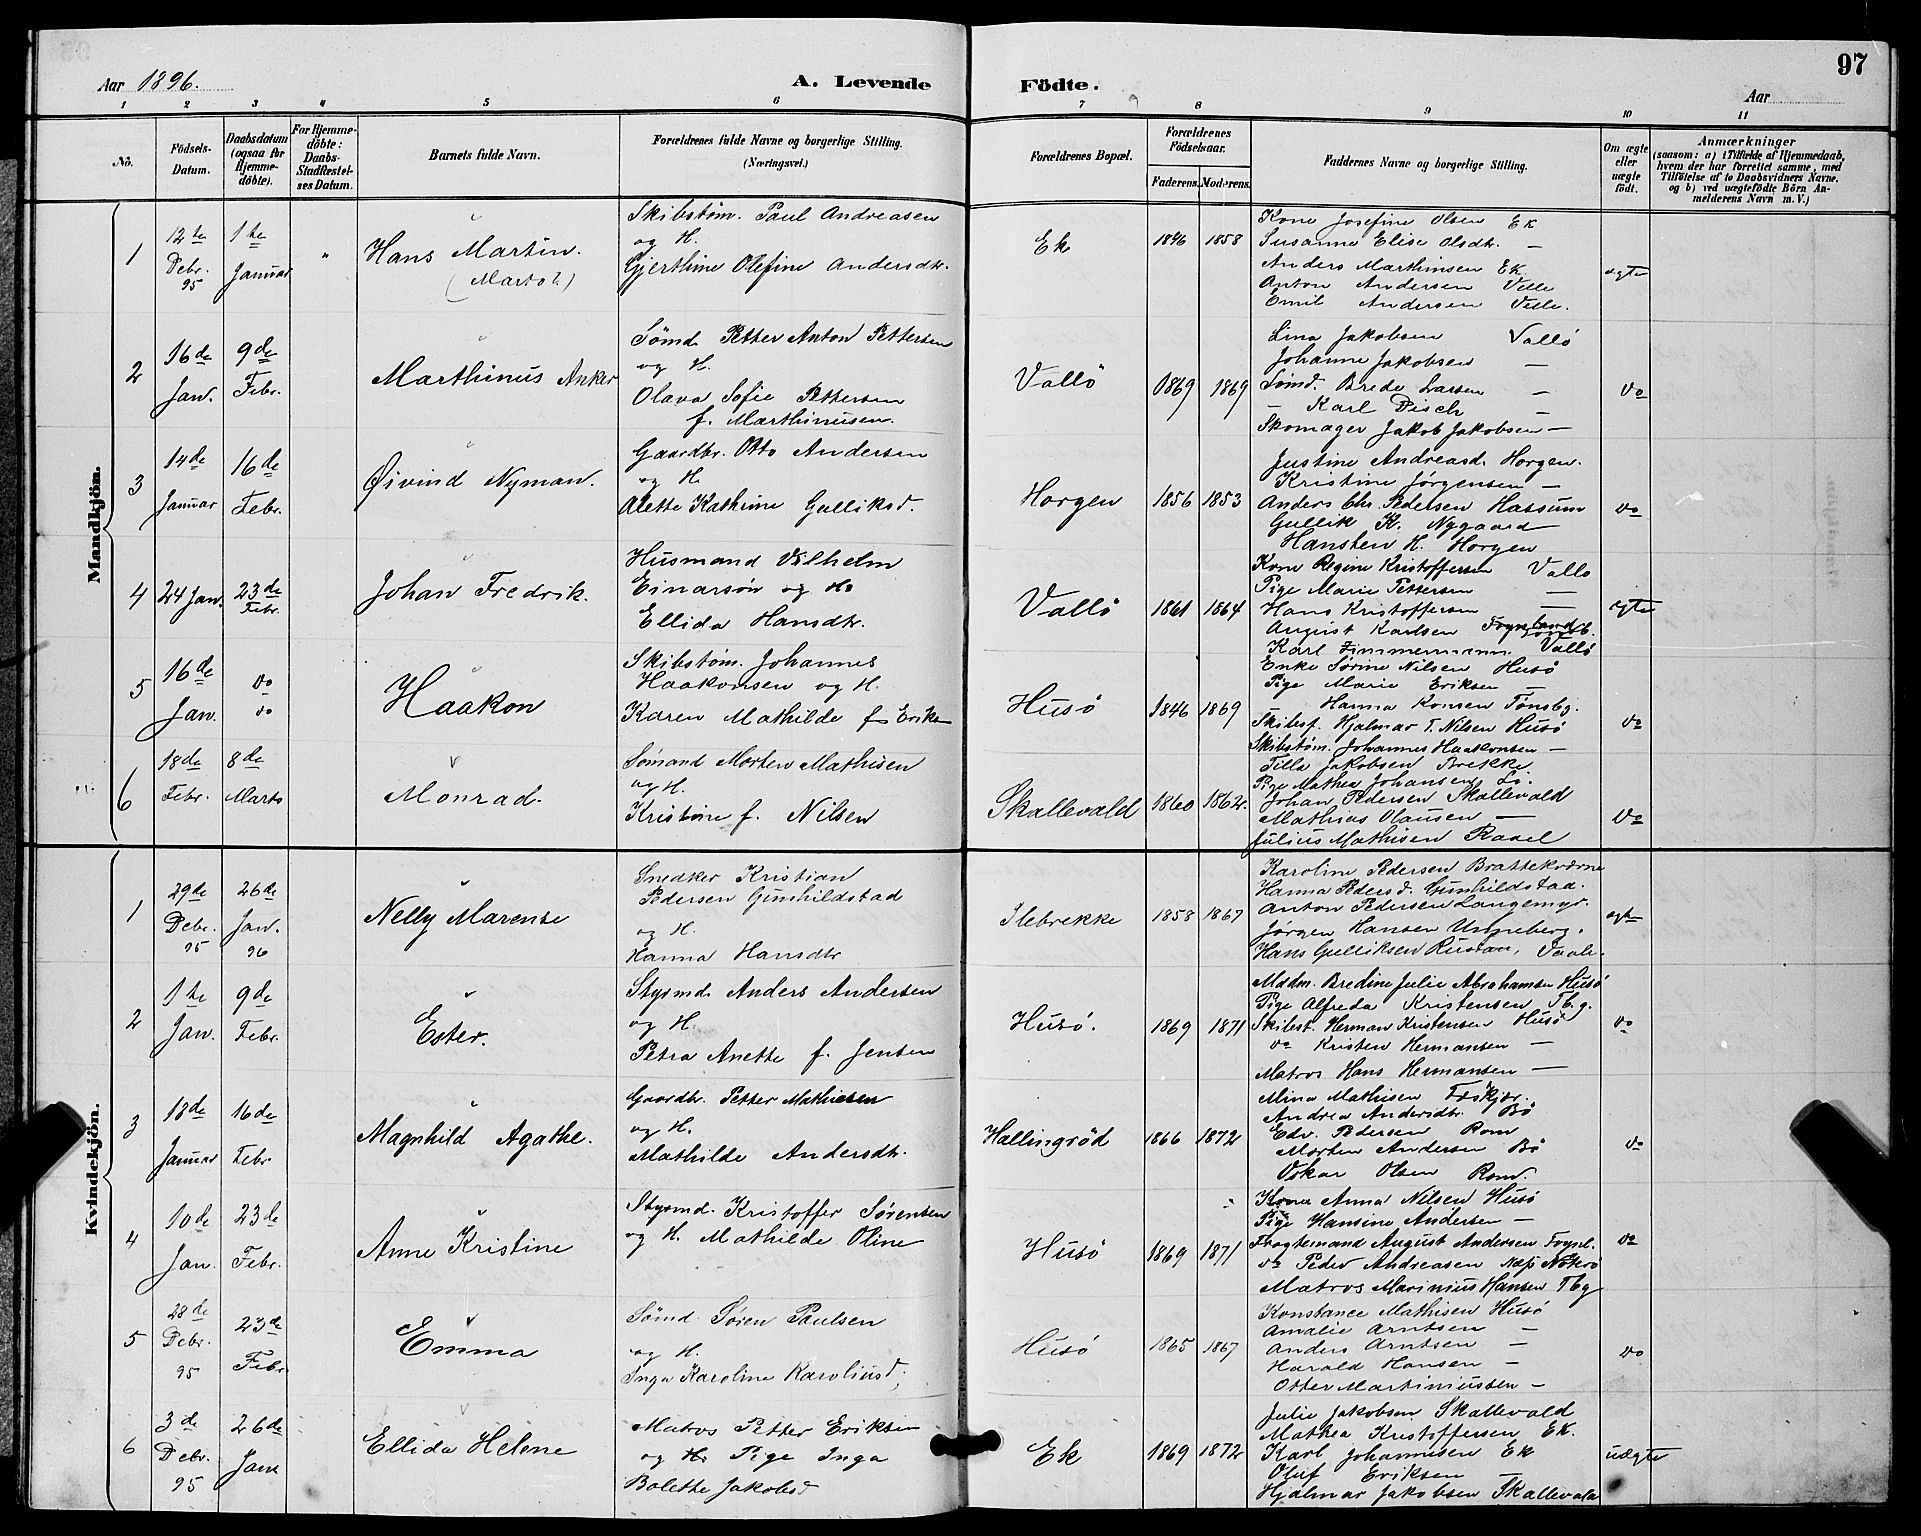 97
Aar 1896.
A. Levende Födte.
Aar
1 2 3 4 5 6 7 8 9 10 11
No.
Födsels-
Datum.
Daabsdatum
(ogsaa for
Hjemme-
döbte).
For Hjemme-
döbte:
Daabs-
Stadfæstel-
ses Datum.
Barnets fulde Navn.
Forældrenes fulde Navne og borgerlige Stilling.
(Næringsvei.)
Forældrenes Bopæl.
Forældrenes
Födselsaar.
Faderens. Moderens.
Faddernes Navne og borgerlige Stilling.
Om ægte
eller
uægte
födt.
Anmærkninger
(saasom: a) i Tilfælde af Hjemmedaab,
hvem der har forrettet samme, med
Tilföielse af to Daabsvidners Navne.
og b) ved uægtefödte Börn An-
melderens Navn m. V.)
Mandkjön.
1
12te
Debr.
95
1te
Januar
"
Hans Martin.
Skibstøm. Paul Andreasen
og H.
Gjerthine Olefine Andersdtr.
Ek
1846 1858
Kone Josefine Olsen Ek
Susanne Elise Olsdtr. —
Anders Marthinsen Ek.
Anton Andersen Velle
Emil Andersen Velle.
ægte
2
16de
Jan.
9de
Febr.
Marthinus Anker
Sømd. Petter Anton Pettersen
og H.
Olava Sofie Pettersen
f. Marthinusen.
Vallö
1869 1869
Lina Jakobsen Vallö
Johanne Jakobsen —
Sømd. Brede Larsen —
— Karl Disch —
Skomager Jakob Jakobsen —
do
3
14de
Januar
16de
Febr.
Øivind Nyman.
Gaardbr. Otto Andersen
og H.
Alette Kathrine Gulliksd.
Horgen
1856 1853
Justine Andreasd. Horgen.
Kristine Jørgensen —
Anders Chr. Pedersen Hassum
Gullik K. Nygaard
Hansten H. Horgen
do
4
24 Jan.
23de
Febr.
Johan Fredrik.
Husmand Vilhelm
Einarsøn og H.
Ellida Hansdtr.
Vallö
1861 1864
Kone Regine Kristoffersen Vallo
Pige Marie Pettersen —
Hans Kristoffersen —
August Karlsen
Karl Zimmermann Vallö
ægte
5
16de
Jan.
do
do
Haakon
Skibstøm. Johannes
Haakonsen og H.
Karen Mathilde f. Eriksen
Husö
1846 1869
Enke Sørine Nilsen Husö
Pige Marie Eriksen —
— Hanna Konsen Tönsbg.
Skibsf. Hjalmar T. Nilsen Husö
Skibstøm. Johannes Haakonsen —
do
6
18de
Febr.
8de
Marts
Monrad.
Sømand Morten Mathisen
og H.
Kristine f. Nilsen
Skallevald
1860 1862.
Tilla Jakobsen Brekke
Pige Mathea Johansen
Johan Pedersen Skallevald
Mathias Olausen —
Julius Mathisen
do
Kvindekjön.
1
29de
Debr.
95
26de
Jan.
96
Nelly Marense
Snedker Kristian
Pedersen Gunhildstad
og H.
Hanna Hansdtr
Ilebrekke
1858 1867
Karoline Pedersen Brattekværne
Hanna Pedersd. Gunhildstad.
Anton Pedersen Langemyr.
Jørgen Hansen Unneberg.
Hans Gulliksen Rustan, Vaale.
ægte
2
1te
Jan.
9de
Febr.
Ester.
Styrmd. Anders Andersen
og H.
Petra Anette f. Jensen
Husö.
1869 1871
Madm. Bredine Julie Abrahamsen Husö
Pige Alfreda Kristensen Tbg.
Skibst. Herman Kristensen Husö
do Kristen Hermansen —
Matros Hans Hermansen —
do
3
18de
Januar
16de
Febr.
Magnhild Agathe.
Gaardbr. Petter Mathiesen
og H.
Mathilde Andersdtr.
Hallingrød
1866 1872
Mina Mathisen
Andrea Andersdtr. Bö
Edv. Pedersen Rom
Morten Andersen Bö
Oskar Olsen Rom.
do
4
10de
Jan.
23de
Febr.
Anne Kristine
Styrmd. Kristoffer Sørensen
og H. Mathilde Oline
Husö
1869 1871
Kone Anna Nilsen Husö
Pige Hansine Andersen —
Fragtemand August AndersenFøynl.
do Peder Andreasen Næs Nöterö
Matros Marinius Hansen Tbg
do
5
28de
Debr.
95
23de
Febr.
Emma
Sømd. Søren Paulsen
og H.
Inga Karoline Karoliusd.
Husö
1865 1867
Konstance Mathisen Husö
Amalie Arntsen —
Anders Arntsen —
Harald Hansen —
Otter Martiniussen —
do
6
3de
Debr.
95
26de
Jan
Ellida Helene
Matros Petter Eriksen
og Pige Inga
Bolette Jakobsd
Ek
1869 1872
Julie Jakobsen Skallevald
Mathea Kristoffersen Ek.
Karl Johannisen Ek
Oluf Eriksen —
Hjalmar Jakobsen Skallevald
uægte